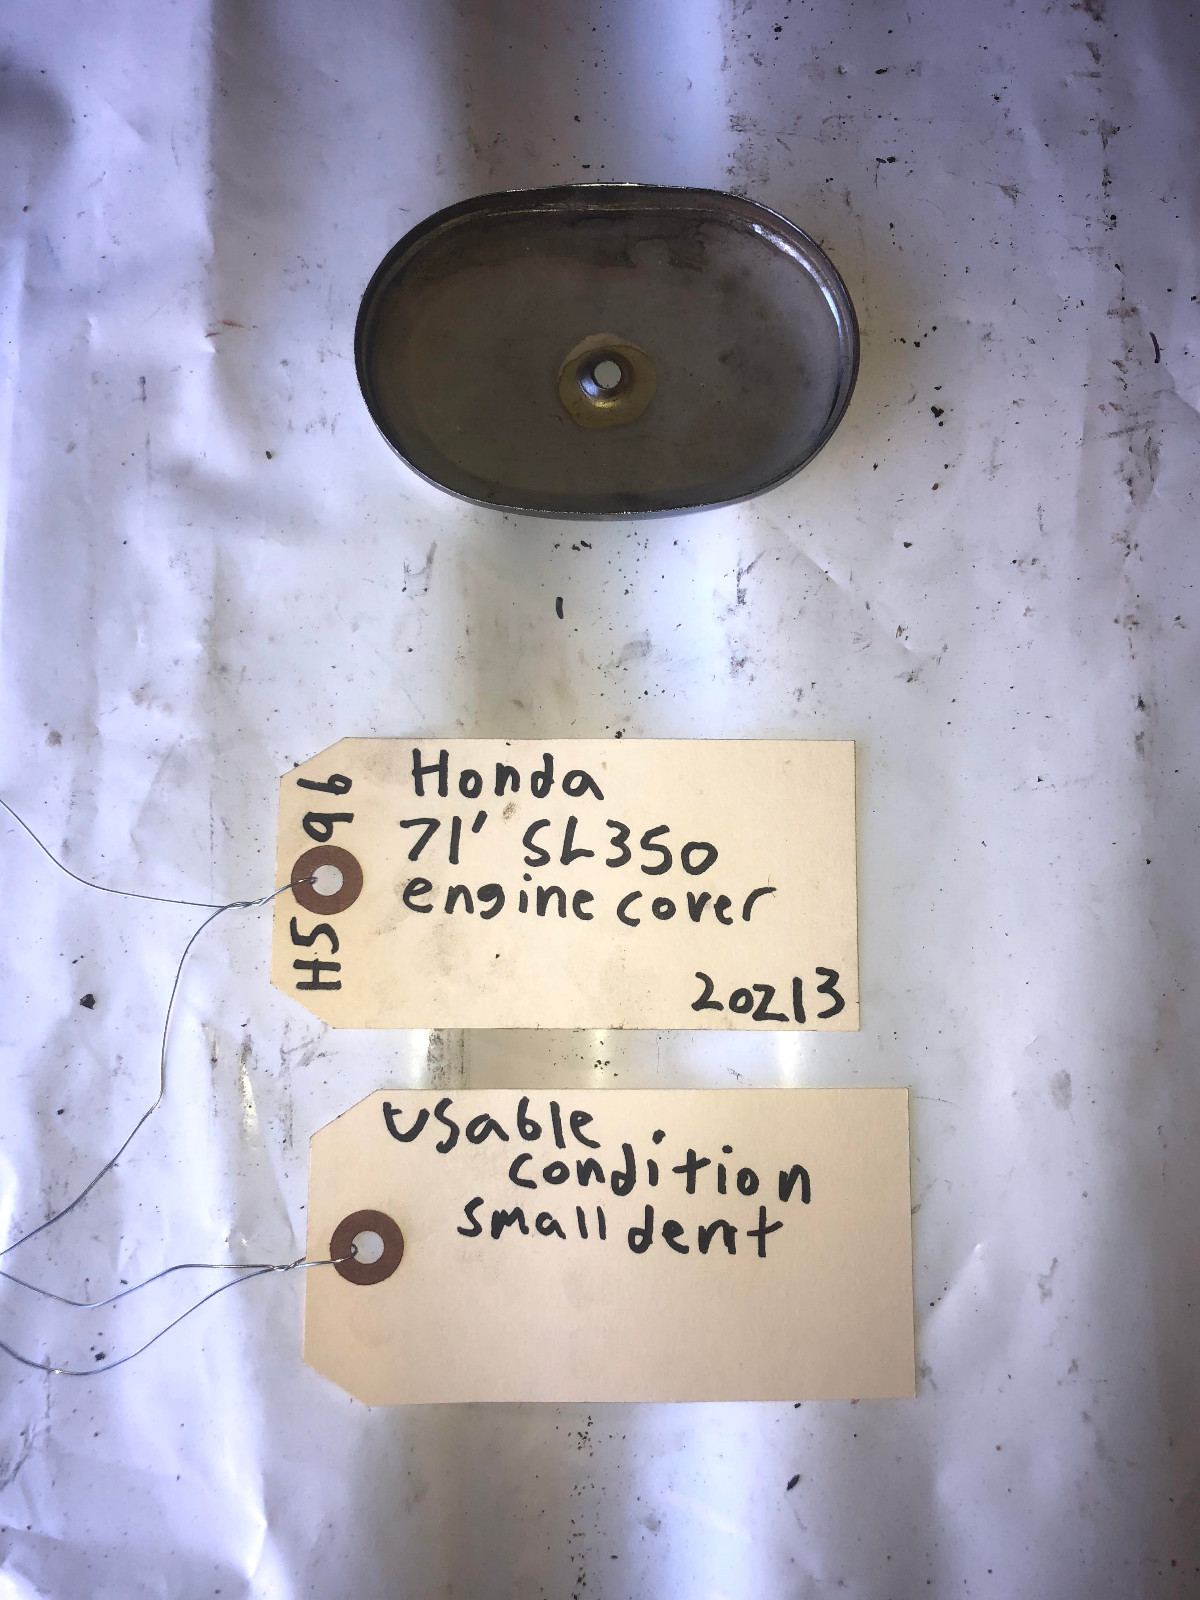 H5 96
Honda
71' SL350
engine cover
20Z13
Usable
condition
small dent